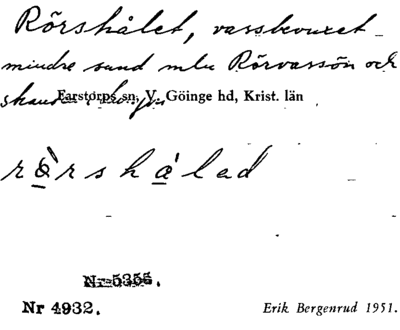 Rörshålet, vassbevuxet
mindre sund mln Rörvassön och
Farstorps sn, V. Göinge hd, Krist. län
rö̀rshålad
Nr 5356.
Nr 4932.
Erik Bergenrud 1951.